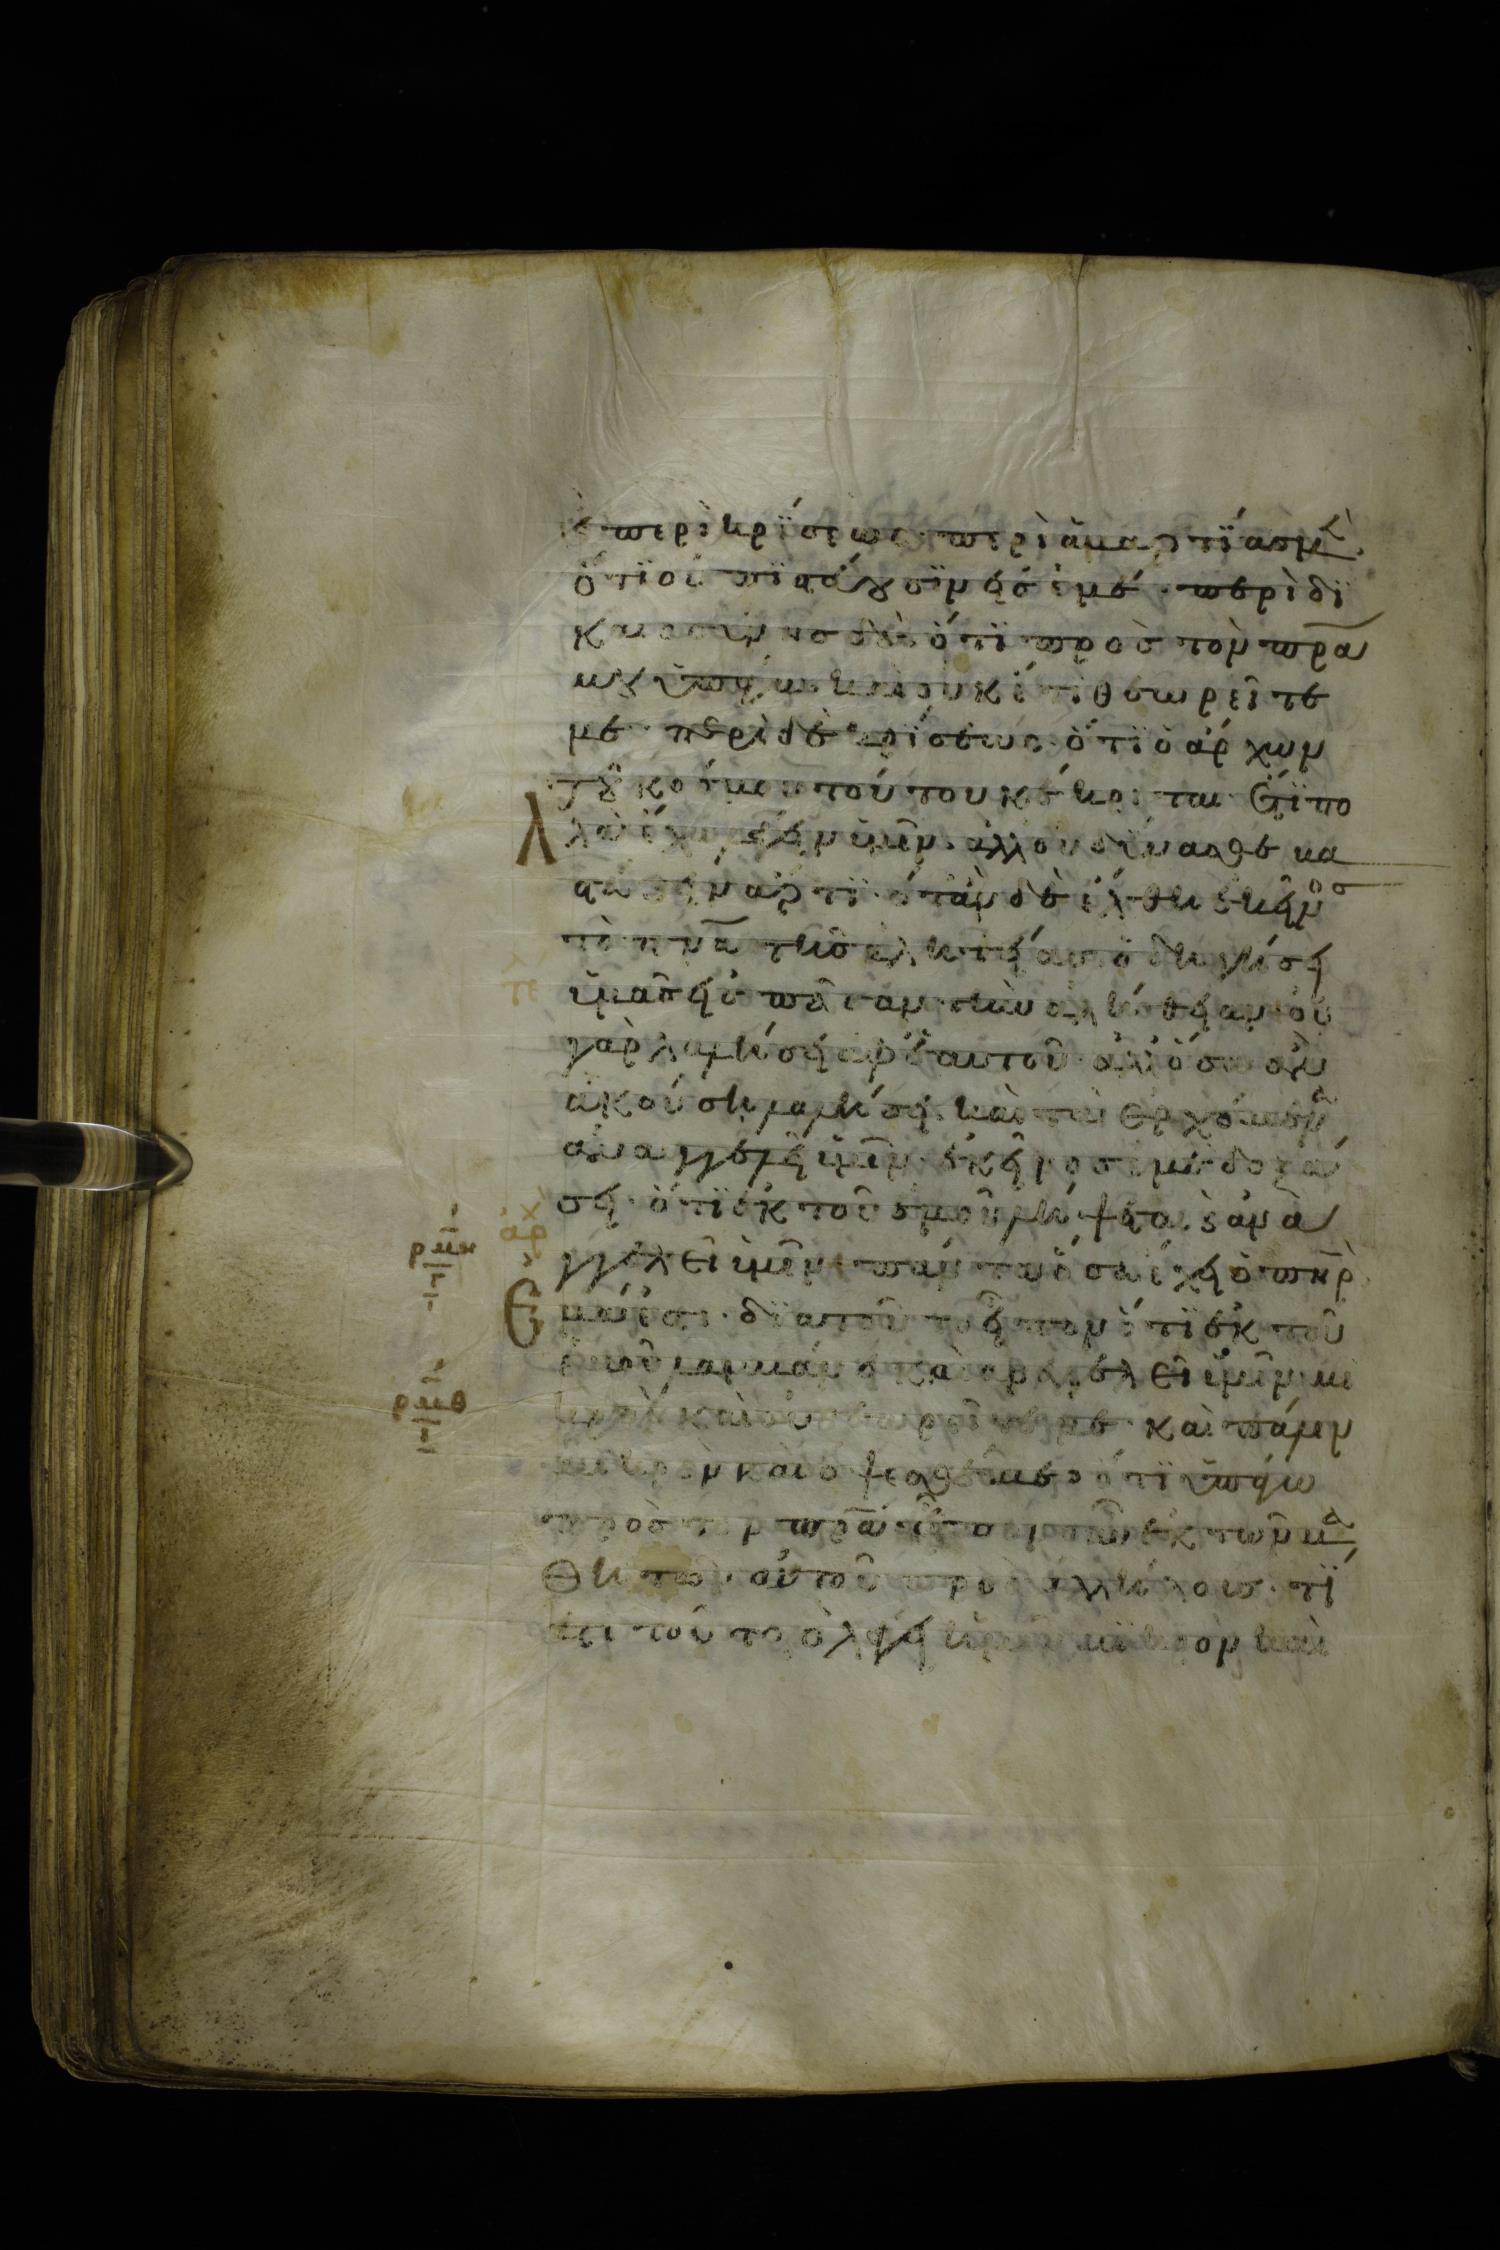 κ περὶ κρίσεως· περὶ ἁμαρτΐασ μὲ
ὅτϊ οὐ πϊστέυουσϊν εἰσ ἐμέ· περὶ δϊ
καιοσύνησ δὲ ὅτϊ πρὸσ τὸν πρα
μου ὑπάγω καὶ οὐκέτι θεωρεῖτε
με· περὶ δὲ κρίσεως· ὅτϊ ὁ ἄρχων
τοῦ κόσμου τούτου κέκριται· Ἔτϊ πο
λὰ ἔχω λέγην ὑμῖν· ἀλλ οὐ δύνασθε βα
στάζην ἄρτϊ· ὅταν δὲ ἔλθη ἐκῆνοσ
τὸ πνα τῆσ ἀληθήασ ὁδηγήσῃ
ὑμᾶσ ἠσ πᾶσαν τὴν ἀλήθηαν· οὐ
γὰρ λαλήσῃ ἀφ ἑαυτοῦ· ἀλλ ὅσα ἂν
ἀκούσῃ λαλήσῃ· καὶ τὰ ἐρχόμενα
ἀναγγελῆ ὑμῖν· ἐκῆνοσ ἐμὲ δοξά
σῃ· ὅτϊ ἐκ τοῦ ἐμοῦ λήψεται κ ἀνα
γγελεῖ ὑμῖν· πάντα ὅσα ἔχῃ ὁ πηρ
μά ἐστι· διὰ τοῦτο ἦπον ὅτϊ ἐκ τοῦ
ἐμοῦ λαμβάνει καὶ ἀναγγελεῖ ὑμῖν· μι
κρὸν καὶ οὐ θεωρεῖτε με· καὶ πάλην
μικρὸν καὶ ὄψεσθέ με· ὅτϊ ὑπάγω
πρὸσ τὸν πρα· εἶπον οὖν ἐκ τῶν μα
θητῶν αὐτοῦ πρὸσ ἀλλήλουσ· τί
ἐστι τοῦτο ὃ λέγῃ ἡμῖν μϊκρὸν καὶ
τε
ρμη
γ
αρχ
ρμθ
ι